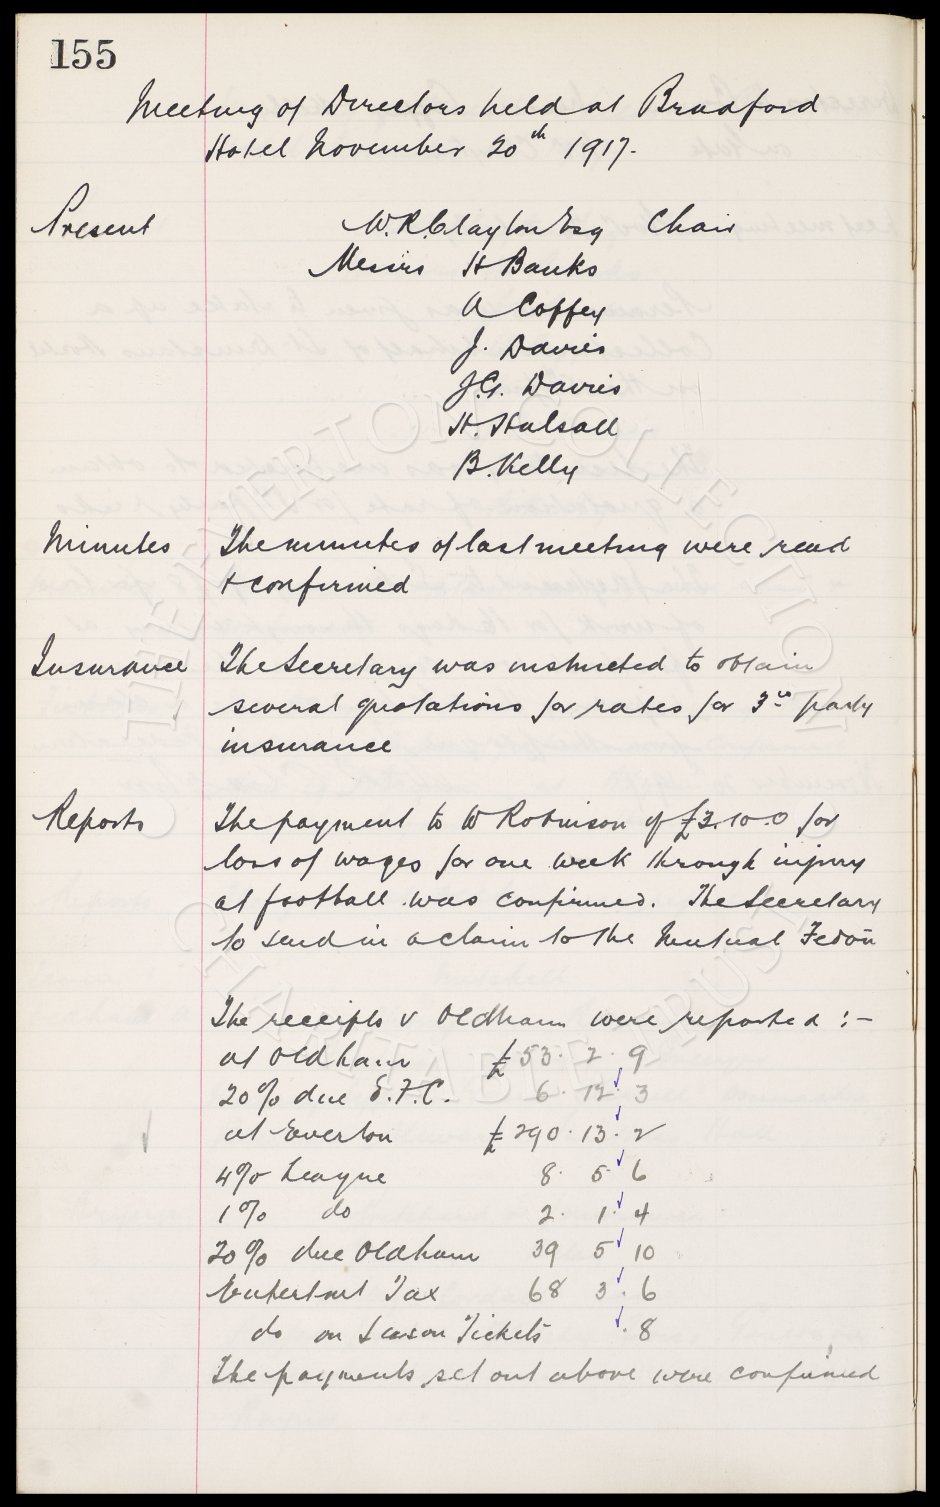 155
Meeting of Directors held at Bradford
Hotel November 20th 1917.
Present W.R. Clayton Esq Chair
Messrs H Banks
A Coffey
J. Davies
J.G. Davies
H. Halsall
B. Kelly
Minutes The minutes of last meeting were read
& confirmed
Insurance The Secretary was instructed to obtain
several quotations for rates for 3rd party
insurance
Reports The payment to W Robinson of £3.10.0 for
loss of wages for one week through injury
at football was confirmed. The Secretary
to send in a claim to the Mutual Fedon
The receipts v Oldham were reported :-
at Oldham £53. 2. 9
20% due E.F.C. 6. 12. 3
at Everton £290. 13. 2
4% League 8. 5. 6
1% do 2. 1. 4
20% due Oldham 39 5 10
Entertmt Tax 68 3. 6
do on Season Tickets . 8
The payments set out above were confirmed
THE EVERTON COLLECTION
CHARITABLE TRUST